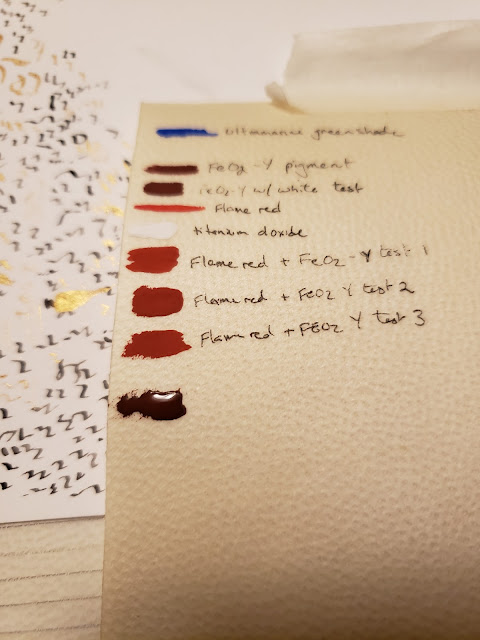 Ultramarine green shade
FeO2 - Y pigment
FeO2-Y w/ white test
Flame red
titanium dioxide
Flame red + FeO2 - Y test 1
Flame red + FeO2 Y test 2
Flame red + FEO2 Y test 3